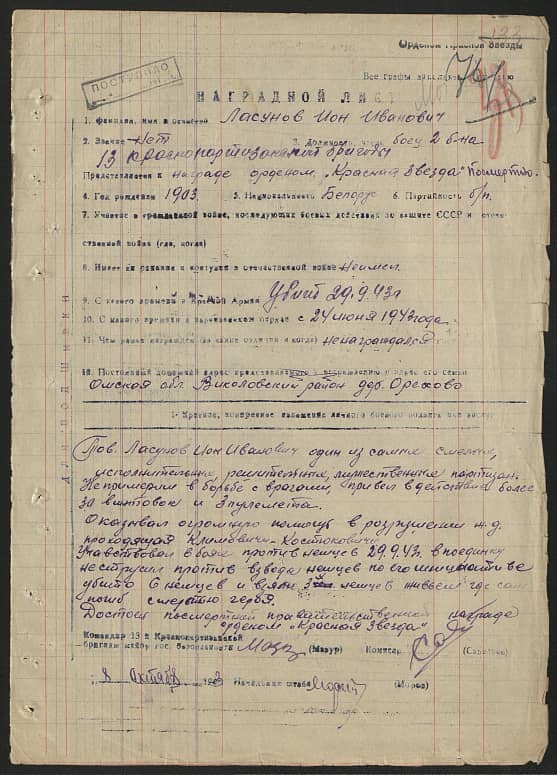 Орденом Красной Звезды
ПОСТУПИЛО
НАГРАДНОЙ ЛИСТ
1. Фамилия, имя и отчество Ласунов Ион Иванович
2. Звание нет 3. Должность, часть боец 2 б-на
13 краснопартизанской бригады
Представляется к награде орденом „Красная Звезда" Посмертно.
4. Год рождения 1903 5. Национальность Белорус 6. Партийность б/п.
7. Участие в гражданской войне, последующих боевых действиях по защите СССР и отече-
ственной войне (где, когда)
8. Имеет ли ранения и контузии в отечественной войне неимел.
9. С какого времени в Красной Армии Убит 29.9.43г
10. С какого времени в партизанском отряде с 24 июня 1943 года.
11. Чем ранее награжден (за какие отличия и когда) ненаграждался
12. Постоянный домашний адрес представляемого к награждению и адрес его семьи
Омская обл. Викуловский район дер. Орехово
1. Краткое, конкретное изложение личного боевого подвига или заслуг
Тов. Ласунов Ион Иванович один из самых смелых,
исполнительных, решительных, мужественных партизан.
Непримерим в борьбе с врагами, привел в действия более
винтовок и 3 пулемета.
Оказывал огромную помощь в розрушении ж.д.
проходящая Климовичи-Костюковичи
Учавствовал в боях против немцев 29.9.43. в поединку
неструсил против взвода немцев по его инициативе
убито 6 немцев и взяли 3 немцев живьем где сам
погиб смертю героя.
Достоен посмертной правительственной награде
орденом „Красная Звезда"
Командир 13 й Краснопартизанской
бригады майор гос. безопасности (Мазур) Комиссар
8 октября 1943 Начальник штаба (Моров)
ДЛЯ ПОДШИВКИ